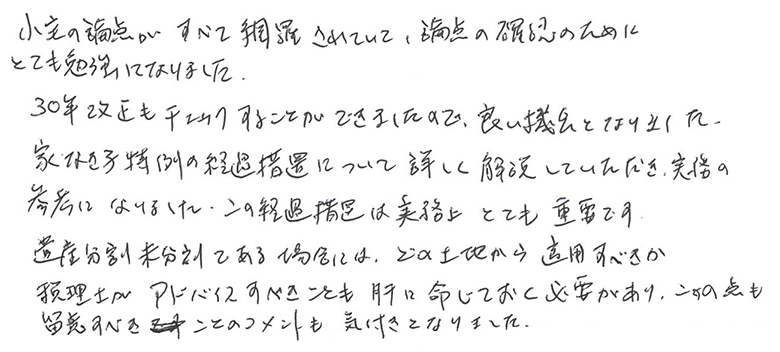 小宅の論点がすべて網羅されていて、論点の確認のために
とても勉強になりました.
30年改正もチェックすることができましたので、良い機会となりました.
家なき子特例の経過措置について詳しく解説していただき、実務の
参考になりました.この経過措置は実務上とても重要です.
遺産分割未分割である場合には、どの土地から適用すべきか
税理士がアドバイスすべきことも肝に命じておく必要があり、この点も
留意すべきことのコメントも気付きとなりました.